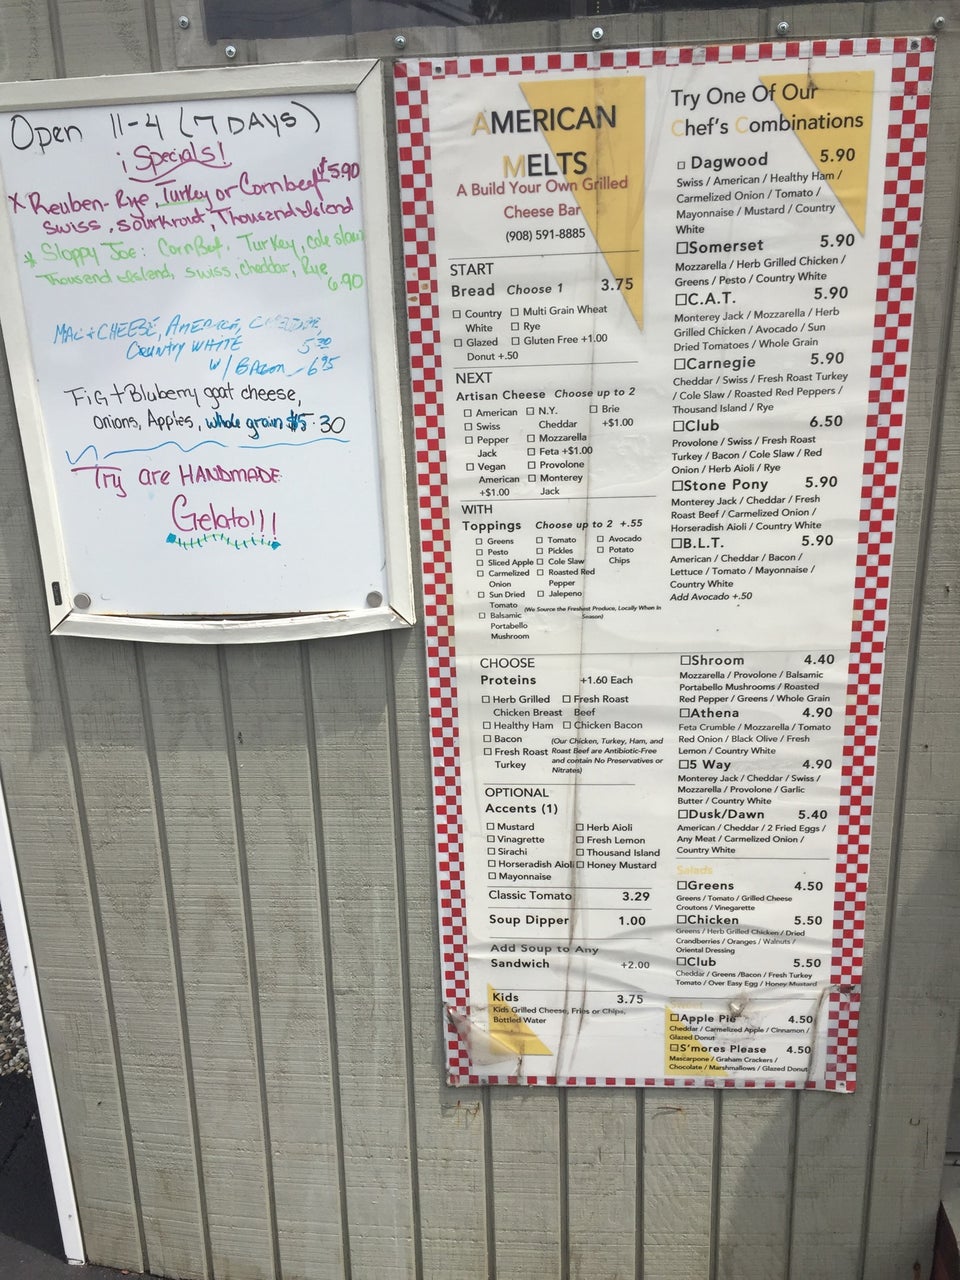 Open 11-4 (7 DAYS)
¡Specials!
$5.90
X Reuben- Rye, Turkey or Cornbeef
swiss, sourkrout, Thousand Island
* Sloppy Joe: CornBeef, Turkey, cole slaw
Thousend Island, swiss, cheddar, Rye
6.90
MAC + CHEESE, AMERICA,
Country WHITE 5.30
w/ BACON 6.95
FiG + Bluberry goat cheese,
onions, Apples, whole grain $5.30
Try are HANDMADE
Gelato!!!
AMERICAN
MELTS
A Build Your Own Grilled
Cheese Bar
(908) 591-8885
START
Bread Choose 1 3.75
☐ Country White
☐ Glazed Donut +.50
☐ Multi Grain Wheat
☐ Rye
☐ Gluten Free +1.00
NEXT
Artisan Cheese Choose up to 2
☐ American
☐ Swiss
☐ Pepper
Jack
☐ Vegan
American
+$1.00
☐ N.Y.
Cheddar
☐ Mozzarella
☐ Feta +$1.00
☐ Provolone
☐ Monterey
Jack
☐ Brie
+$1.00
WITH
Toppings Choose up to 2 +.55
☐ Greens
☐ Pesto
☐ Sliced Apple
☐ Carmelized
Onion
☐ Sun Dried
Tomato
☐ Balsamic
Portabello
Mushroom
☐ Tomato
☐ Pickles
☐ Cole Slaw
☐ Roasted Red
Pepper
☐ Jalepeno
☐ Avocado
☐ Potato
Chips
(We Source the Freshest Produce, Locally When in
Season)
CHOOSE
Proteins +1.60 Each
☐ Herb Grilled
Chicken Breast
☐ Healthy Ham
☐ Bacon
☐ Fresh Roast
Turkey
☐ Fresh Roast
Beef
☐ Chicken Bacon
(Our Chicken, Turkey, Ham, and
Roast Beef are Antibiotic-Free
and contain No Preservatives or
Nitrates)
OPTIONAL
Accents (1)
☐ Mustard
☐ Vinagrette
☐ Sirachi
☐ Horseradish Aioli
☐ Mayonnaise
☐ Herb Aioli
☐ Fresh Lemon
☐ Thousand Island
☐ Honey Mustard
Classic Tomato 3.29
Soup Dipper 1.00
Add Soup to Any
Sandwich +2.00
Kids 3.75
Kids Grilled Cheese, Fries or Chips,
Bottled Water
Try One Of Our
Chef's Combinations
☐ Dagwood 5.90
Swiss / American / Healthy Ham /
Carmelized Onion / Tomato /
Mayonnaise / Mustard / Country
White
☐Somerset 5.90
Mozzarella / Herb Grilled Chicken /
Greens / Pesto / Country White
☐C.A.T. 5.90
Monterey Jack / Mozzarella / Herb
Grilled Chicken / Avocado / Sun
Dried Tomatoes / Whole Grain
☐Carnegie 5.90
Cheddar / Swiss / Fresh Roast Turkey
/ Cole Slaw / Roasted Red Peppers /
Thousand Island / Rye
☐Club 6.50
Provolone / Swiss / Fresh Roast
Turkey / Bacon / Cole Slaw / Red
Onion / Herb Aioli / Rye
☐Stone Pony 5.90
Monterey Jack / Cheddar / Fresh
Roast Beef / Carmelized Onion /
Horseradish Aioli / Country White
☐B.L.T. 5.90
American / Cheddar / Bacon /
Lettuce / Tomato / Mayonnaise /
Country White
Add Avocado +.50
☐Shroom 4.40
Mozzarella / Provolone / Balsamic
Portabello Mushrooms / Roasted
Red Pepper / Greens / Whole Grain
☐Athena 4.90
Feta Crumble / Mozzarella / Tomato
Red Onion / Black Olive / Fresh
Lemon / Country White
☐5 Way 4.90
Monterey Jack / Cheddar / Swiss /
Mozzarella / Provolone / Garlic
Butter / Country White
☐Dusk/Dawn 5.40
American / Cheddar / 2 Fried Eggs /
Any Meat / Carmelized Onion /
Country White
Salads
☐Greens 4.50
Greens / Tomato / Grilled Cheese
Croutons / Vinegarette
☐Chicken 5.50
Greens / Herb Grilled Chicken / Dried
Crandberries / Oranges / Walnuts /
Oriental Dressing
☐Club 5.50
Cheddar / Greens /Bacon / Fresh Turkey
Tomato / Over Easy Egg / Honey Mustard
☐Apple Pie 4.50
Cheddar / Carmelized Apple / Cinnamon /
Glazed Donut
☐S'mores Please 4.50
Mascarpone / Graham Crackers /
Chocolate / Marshmallows / Glazed Donut